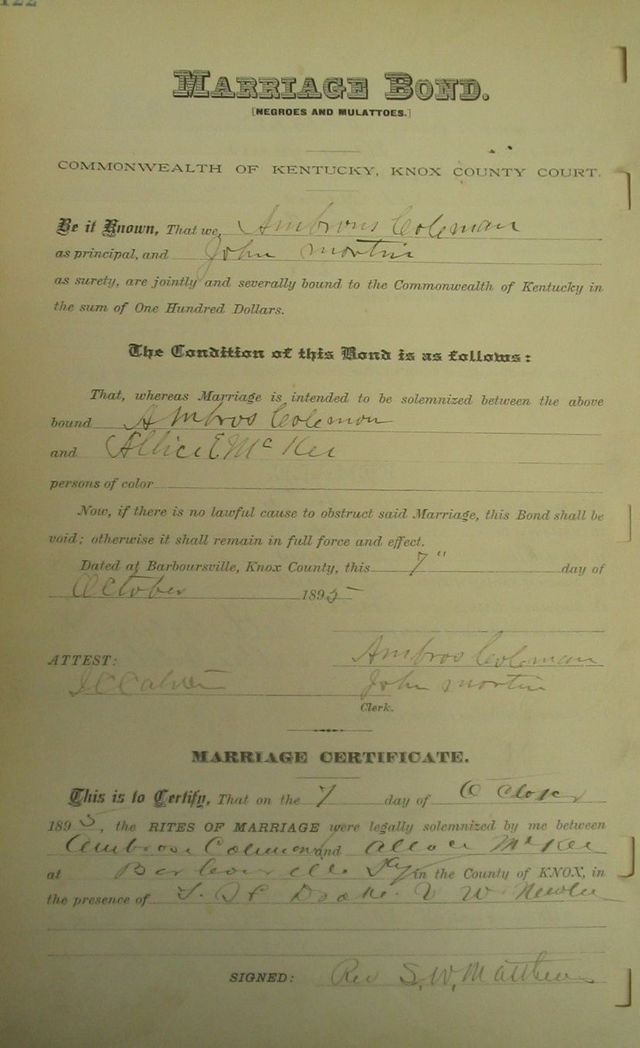 122
MARRIAGE BOND.
[NEGROES AND MULATTOES.]
COMMONWEALTH OF KENTUCKY, KNOX COUNTY COURT.
Be it Known, That we, Ambrous Coleman
as principal, and John Martin
as surety, are jointly and severally bound to the Commonwealth of Kentucky in
the sum of One Hundred Dollars.
The Condition of this Bond is as follows:
That, whereas Marriage is intended to be solemnized between the above
bound Ambros Coleman
and Allice E McKee
persons of color
Now, if there is no lawful cause to obstruct said Marriage, this Bond shall be
void; otherwise it shall remain in full force and effect.
Dated at Barboursville, Knox County, this 7" day of
October 1895
Ambros Coleman
ATTEST:
John Martin
Clerk.
MARRIAGE CERTIFICATE.
This is to Certify, That on the 7 day of
1895, the RITES OF MARRIAGE were legally solemnized by me between
Ambrose Coleman and McKee
at Barbourville Ky in the County of KNOX, in
the presence of
SIGNED: Rev S. W. Matthews